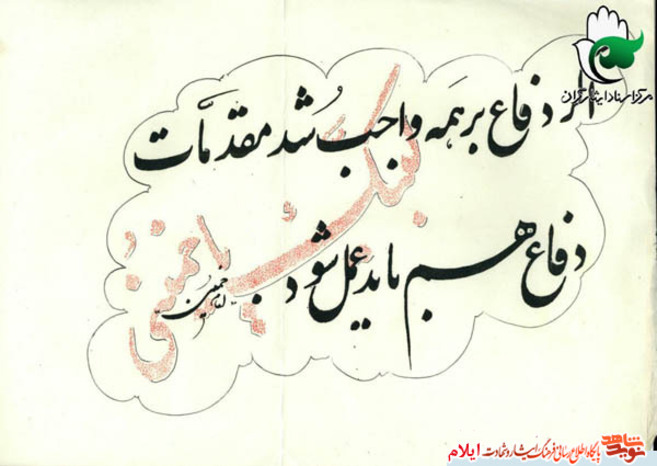 مرکز اسناد ایثارگران
اگر دفاع بر همه واجب شد مقدمات
دفاع هم باید عمل شود
امام خمینی
لبیک یا خمینی
نوید شاهد
پایگاه اطلاع رسانی فرهنگ ایثار و شهادت ایلام